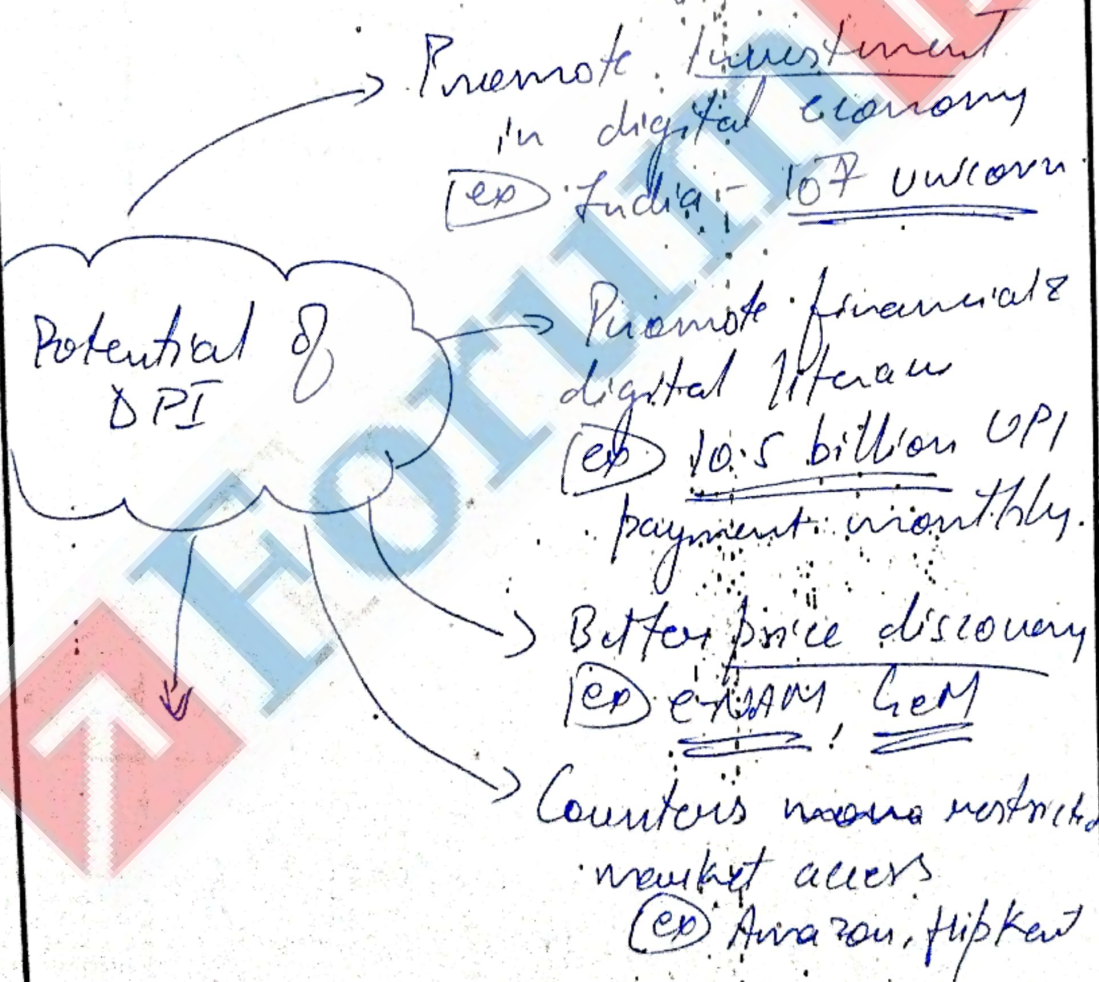 Promote Investment
in digital economy
ex India - 107 unicorn
Potential of
DPI
Promote financial &
digital literacy
ex 10.5 billion UPI
payment monthly.
Better price discovery
ex e-NAM, GeM
Counters restricted
market access
ex Amazon, flipkart
Forum